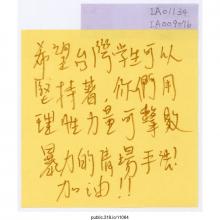 IA01134
IA009076
希望台灣學生可以
堅持著,你們用
理性力量可擊敗
暴力的情場手法!
加油!!
public.318.io/11084